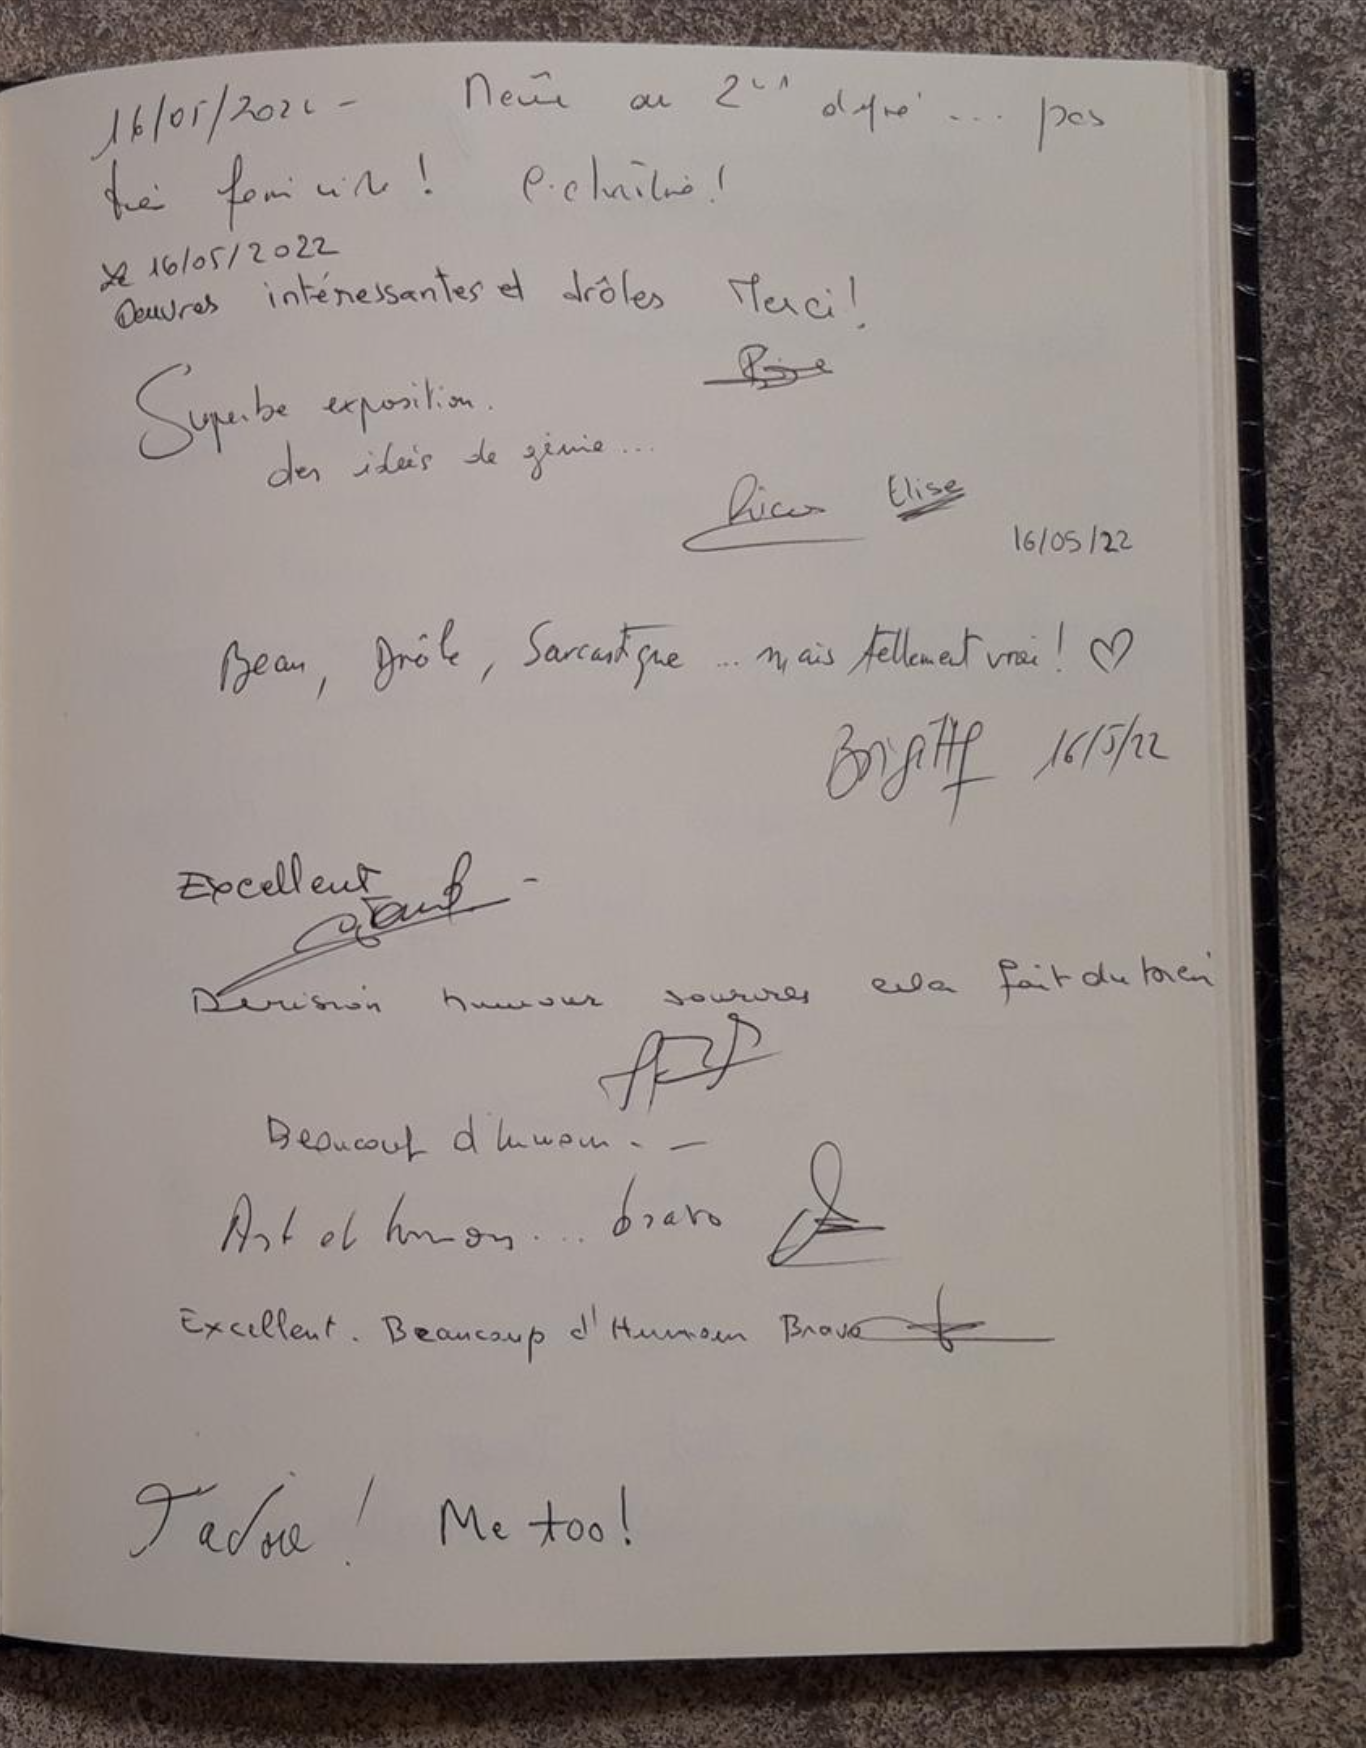 16/05/2022 - Même au 2en degré ... pas
très féministe !
Le 16/05/2022
Oeuvres intéressantes et drôles Merci !
Superbe exposition.
des idées de génie ...
Elise
16/05/22
Beau, Drôle, Sarcastique ... mais tellement vrai ! ♡
Brigitte 16/5/22
Excellent
Derision humour sourires cela fait du bien
Beaucoup d'humour. -
Art et humour ... bravo
Excellent. Beaucoup d'Humour Bravo
J'adore ! Me too !